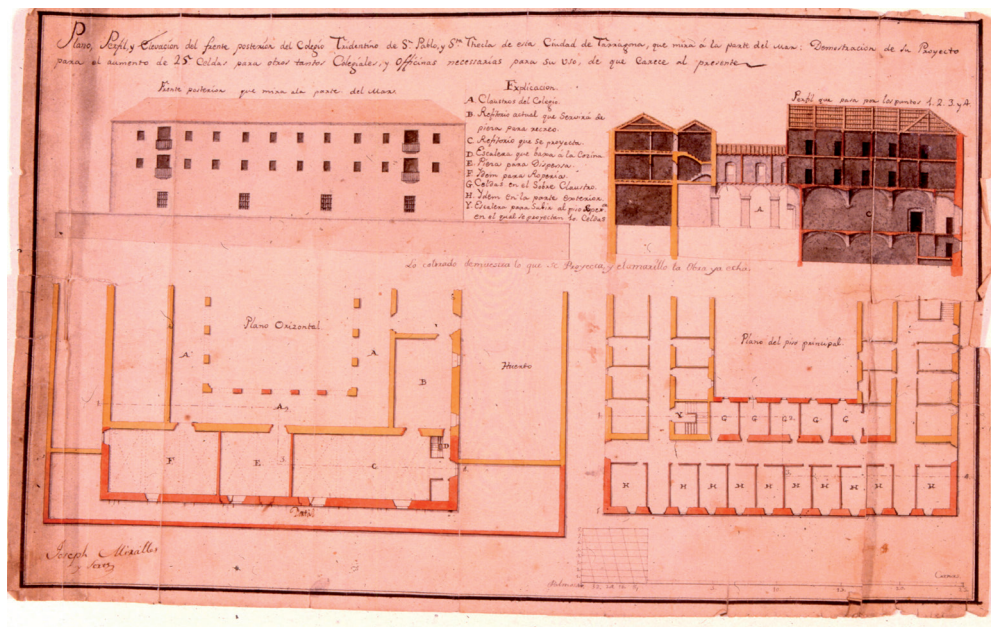 Plano, Perfil, y Elevacion del frente posterior del Colegio Tridentino de Sn. Pablo, y Sta. Thecla de esta Ciudad de Tarragona, que mira â la parte del Mar: Demostracion de su Proyecto
para el aumento de 25 Celdas para otros tantos Colegiales, y Officinas necessarias para su Uso, de que Carece al presente
Frente posterior que mira ala parte del Mar.
Explicacion.
A. Claustros del Colegio.
B. Refitorio actual que servirá de
pieza para recreo.
C. Refitorio que se proyecta.
D. Escalera que baxa â la Cozina.
E. Pieza para Dispensa.
F. Ydem para Roperia.
G. Celdas en el Sobre Claustro.
H. Ydem en la parte exterior.
Y. Escalera para Subir al piso
en el qual se proyectan 10 Celdas
Perfil que pasa por los puntos 1. 2. 3. y 4.
A
C
Lo colorado demuestra lo que se Proyecta, y el amarillo la Obra ya echa.
Plano Orizontal.
A
A
B
Huerto
A
D
F
E
3
C
Plano del piso principal.
Y
G
G
G
G
G
H
H
H
H
H
H
H
H
H
H
Joseph Miralles